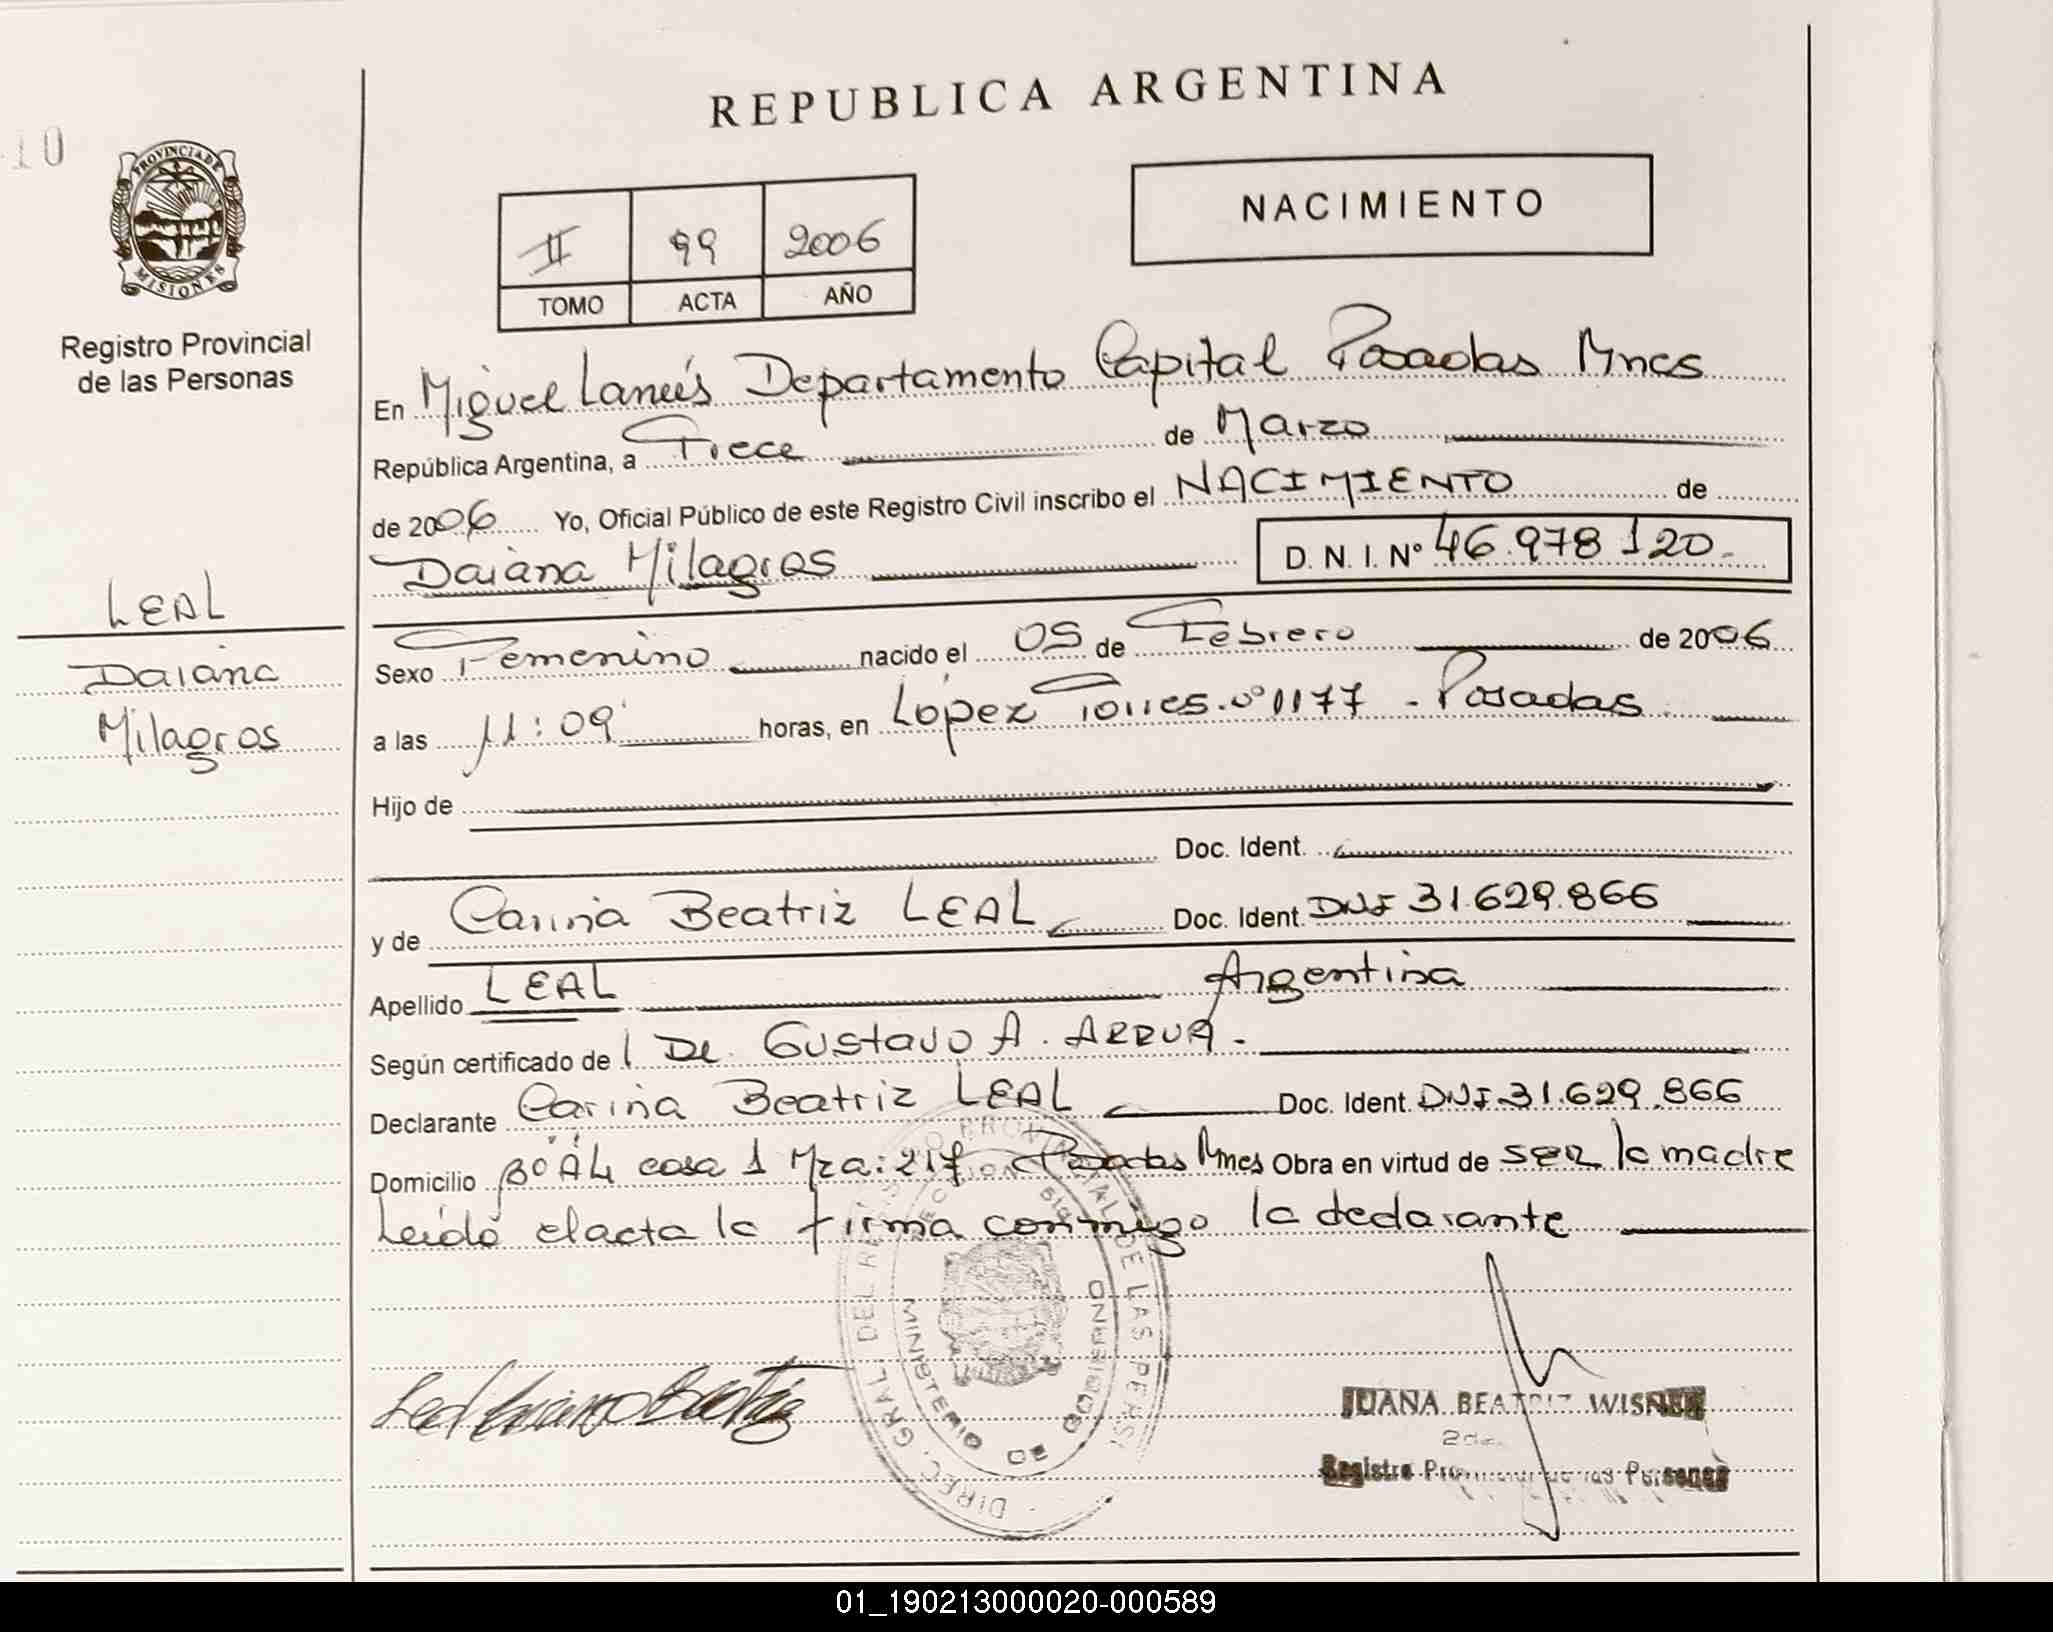 REPUBLICA ARGENTINA
10
PROVINCIA DE
MISIONES
Registro Provincial
de las Personas
II 99 2006
TOMO ACTA AÑO
NACIMIENTO
En Miguel Lanús Departamento Capital Posadas Mnes
República Argentina, a Trece de Marzo
de 2006 Yo, Oficial Público de este Registro Civil inscribo el NACIMIENTO de
Daiana Milagros D. N. I. Nº 46.978.120.-
LEAL
Daiana
Milagros
Sexo Femenino nacido el 05 de Febrero de 2006
a las 11:09 horas, en López Torres nº 1177 - Posadas
Hijo de
Doc. Ident.
y de Carina Beatriz LEAL Doc. Ident. DNI 31.629.866
Apellido LEAL Argentina
Según certificado de Gustavo A. ARRUA.-
Declarante Carina Beatriz LEAL Doc. Ident. DNI 31.629.866
Domicilio Bº A4 casa 1 Mza: 217 Posadas Mnes Obra en virtud de ser la madre
Leída el acta la firma conmigo la declarante
DIREC. GRAL. DEL REGISTRO PROVINCIAL DE LAS PERS.
MINISTERIO DE GOBIERNO
Leal Carina Beatriz
JUANA BEATRIZ WISNER
Registro Provincial de las Personas
01_190213000020-000589